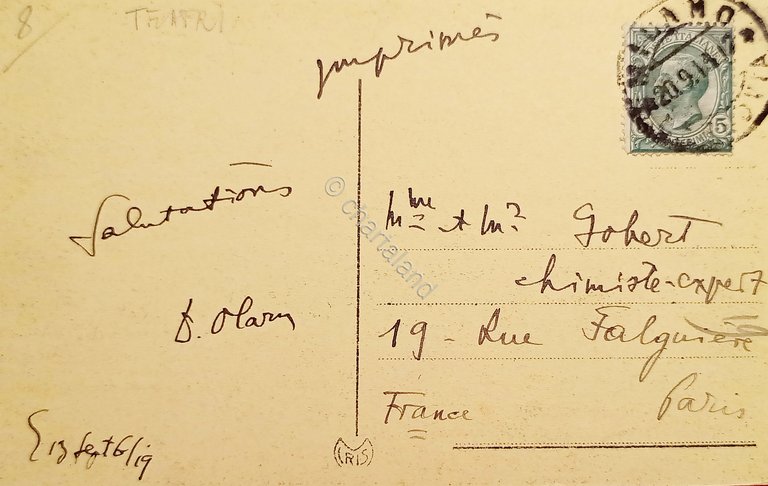 8
TEATRI
imprimés
MILANO
20.9.19.12
5
Salutations
© chartaland
Mme et Mr Gobert
chimiste-expert
19 - Rue Falguière
France
Paris
13 Sept /19